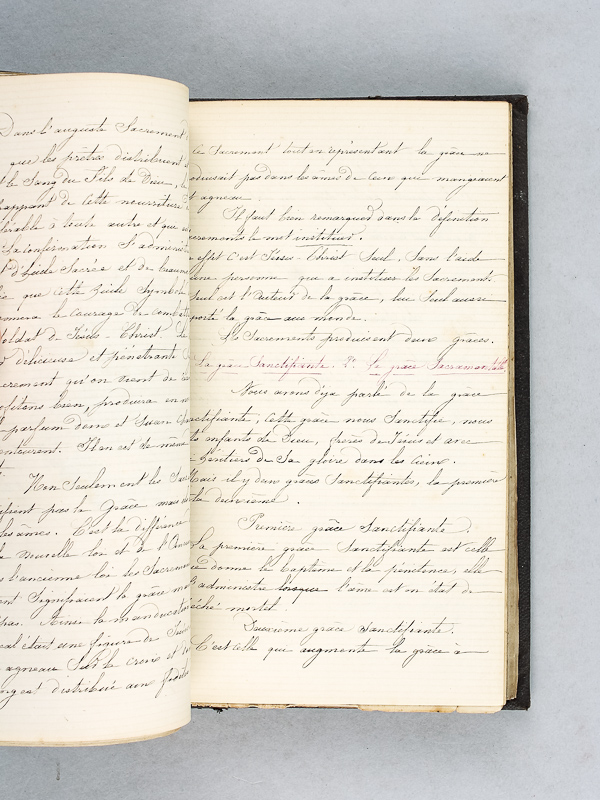 Dans l'auguste Sacrement
que les prêtres distribuent
le Sang du Fils de Dieu, la
frappant de cette nourriture
préférable à toute autre et que
La confirmation S'administre
l'huile Sacrée et de baume
que cette huile Symbole
le courage de combattre
Soldat de Jésus-Christ. Le
délicieuse et pénétrante
Sacrement qu'on vient de
profitons bien, produira en
parfum doux et Suave
Il en est de même
Non Seulement les Sac
pas la Grâce mais
les âmes. C'est la différence
la nouvelle loi et de l'Ancie
l'ancienne loi les Sacreme
Signifiaient la grâce
pas. Ainsi la manducation
était une figure de
agneau Sur la croix et
distribué aux fidèles
ce Sacrement tout en représentant la grâce ne
produisait pas dans les âmes de Ceux que mangeaient
agneau.
Il faut bien remarquer dans la définition
crements le mot instituer.
effet C'est Jésus-Christ Seul, Sans l'aide
une personne que a instituer les Sacrements.
Seul est l'Auteur de la grâce, lui Seul aussi
porté la grâce aux monde.
Les Sacrements produisent deux grâces.
La grâce Sanctifiante. 2º. La grâce Sacramentale.
Nous avons déja parlé de la grâce
nctifiante, Cette grâce nous Sanctifie, nous
ts enfants de Dieu, frères de Jésus et avec
héritiers de Sa gloire dans les Cieux.
Mais il y deux grâces Sanctifiantes, la première
la deuxième.
Première grâce Sanctifiante.
La première grâce Sanctifiante est celle
donne le Baptême et la pénitence, elle
S'administre lorsque l'âme est en état de
éché mortel.
Deuxième grâce Sanctifiante.
C'est celle que augmente la grâce à